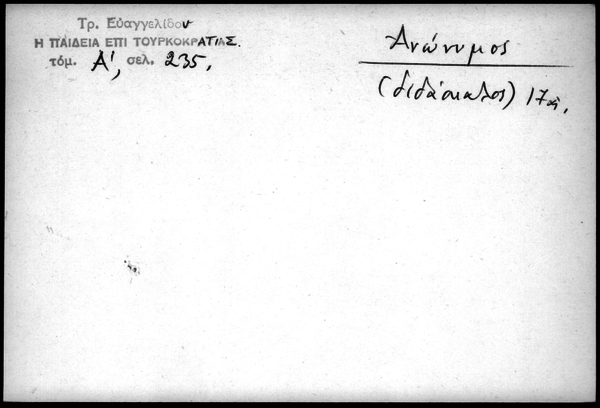 Τρ. Εὐαγγελίδου
Η ΠΑΙΔΕΙΑ ΕΠΙ ΤΟΥΡΚΟΚΡΑΤΙΑΣ.
τόμ. Α', σελ. 235.
Ἀνώνυμος
(διδάσκαλος) 17ος.